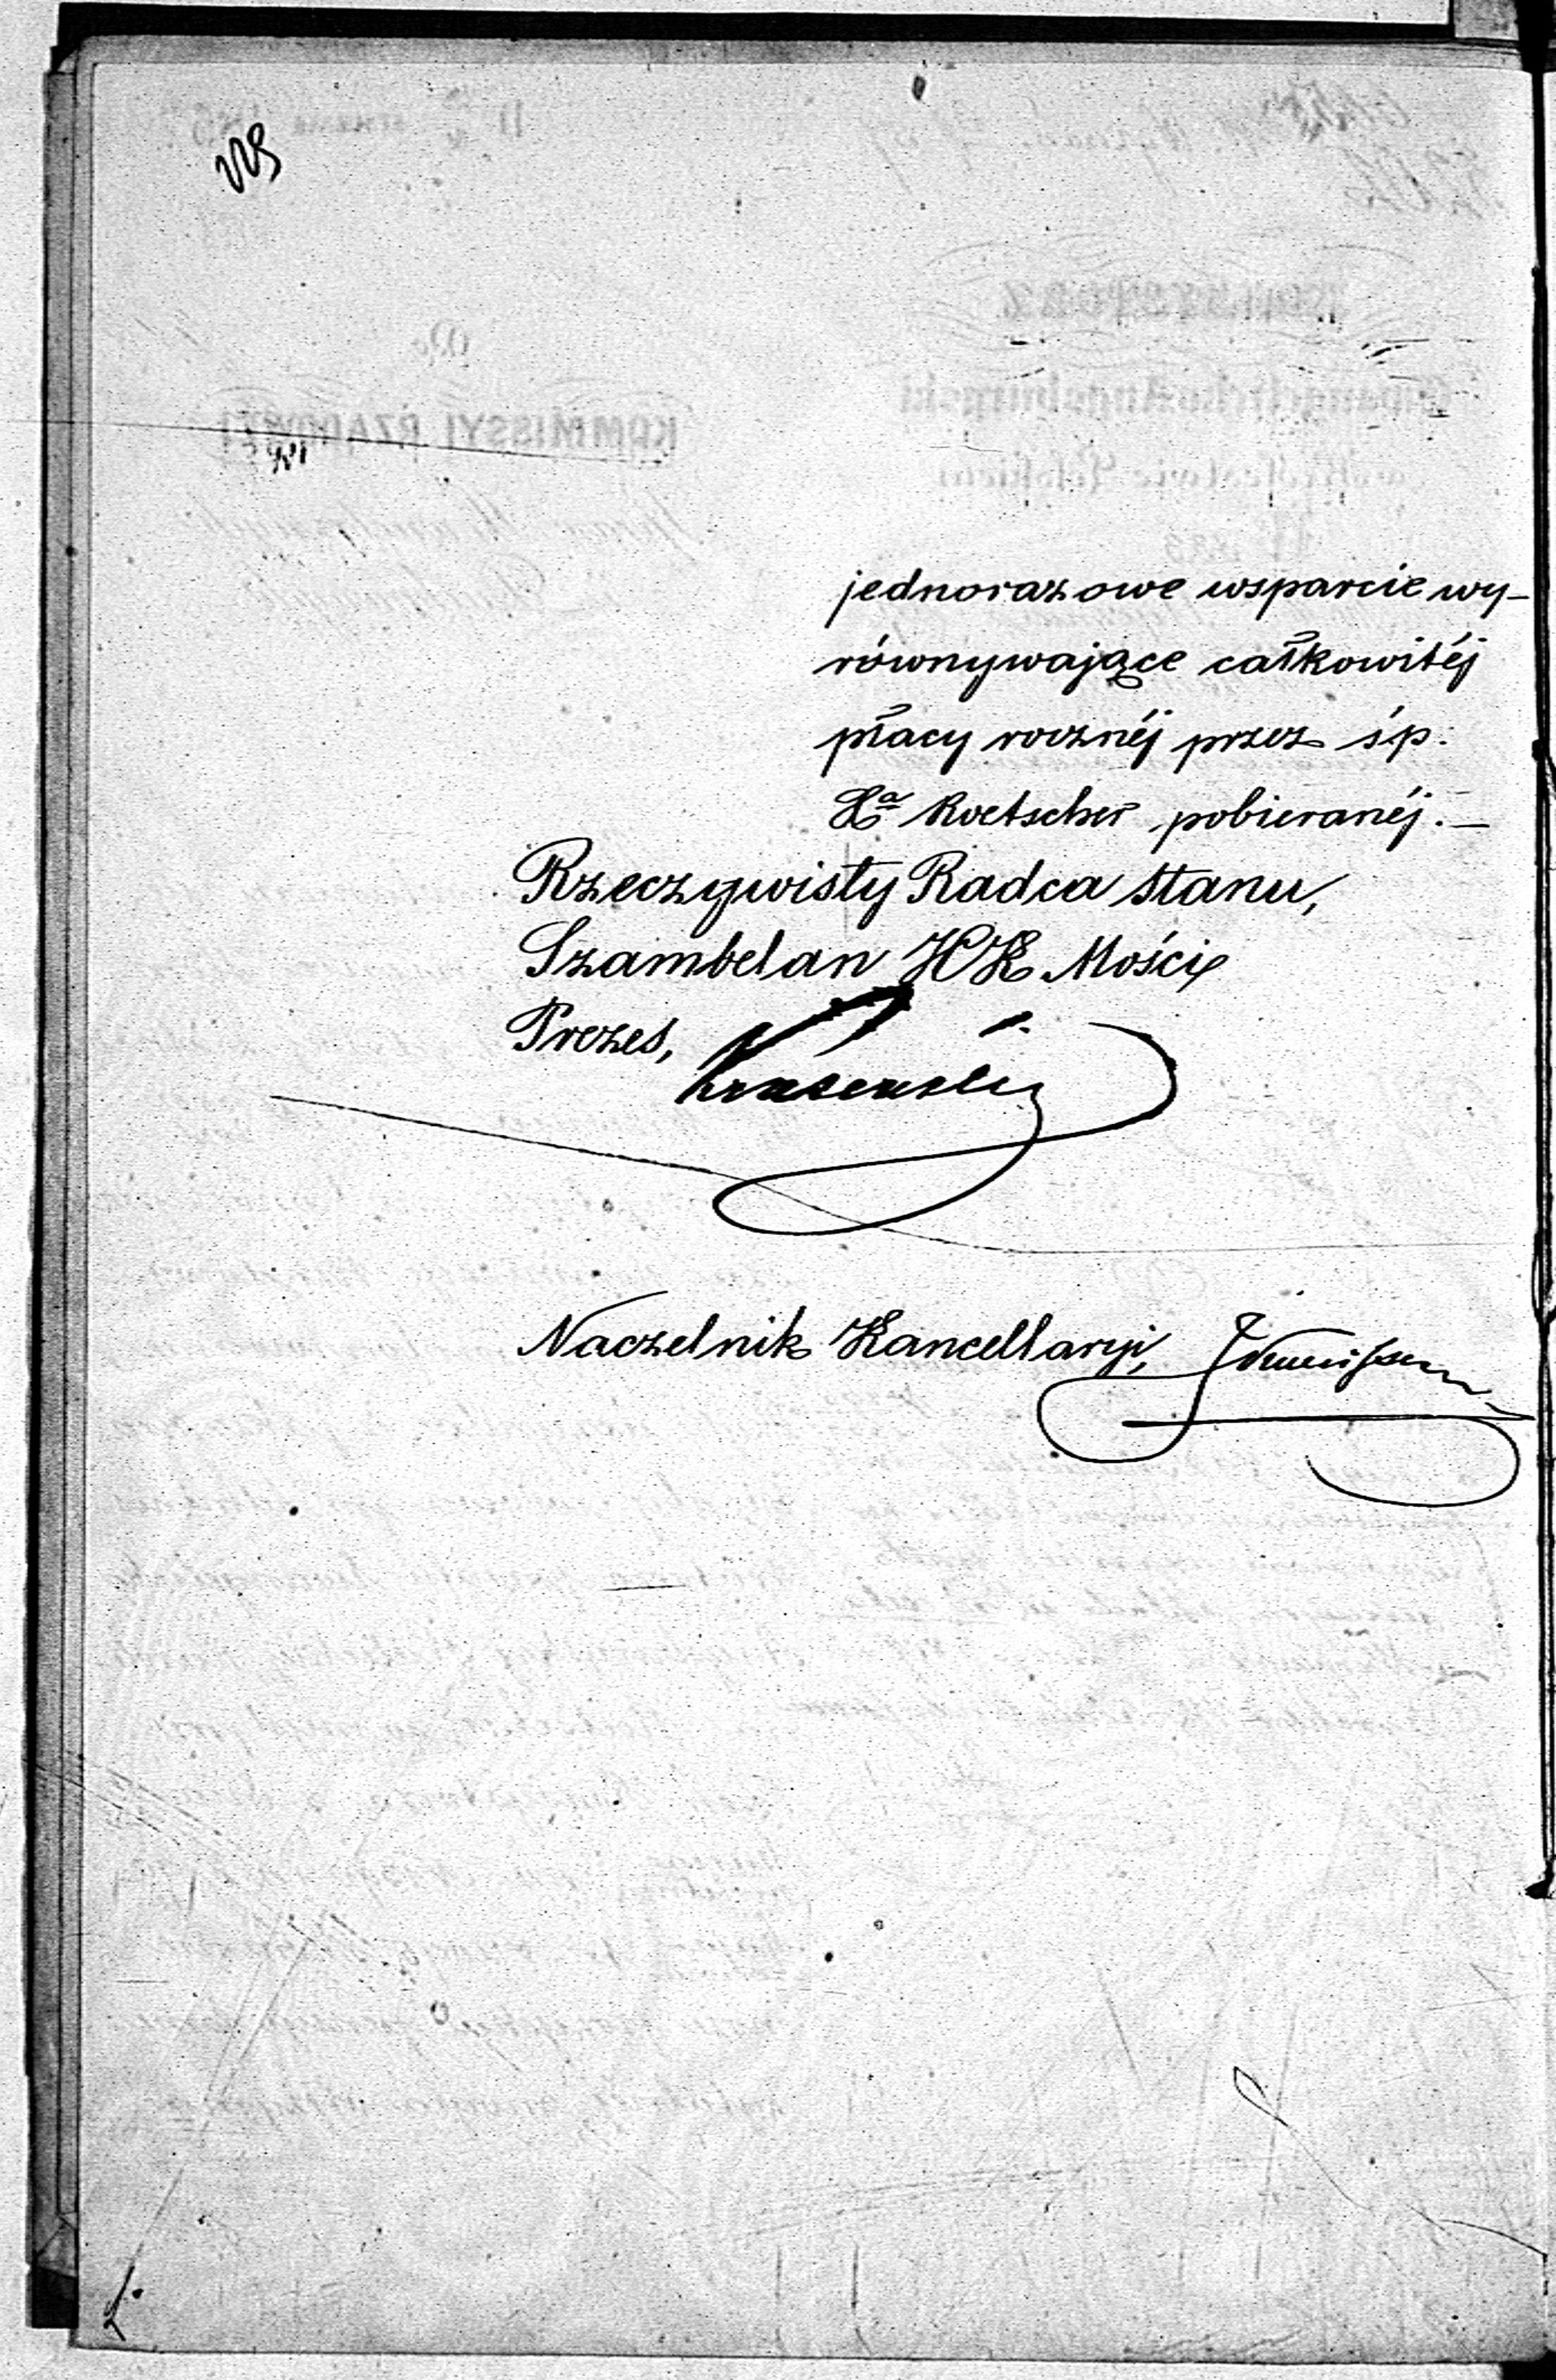 jednorazowe wsparcie wy-
równywające całkowitéj
płacy rocznéj przez śp.
Xa Roetscher pobieranéj.—
Rzeczywisty Radca Stanu,
Szambelan JCK Mości
Prezes,
Naczelnik Kancellaryi,